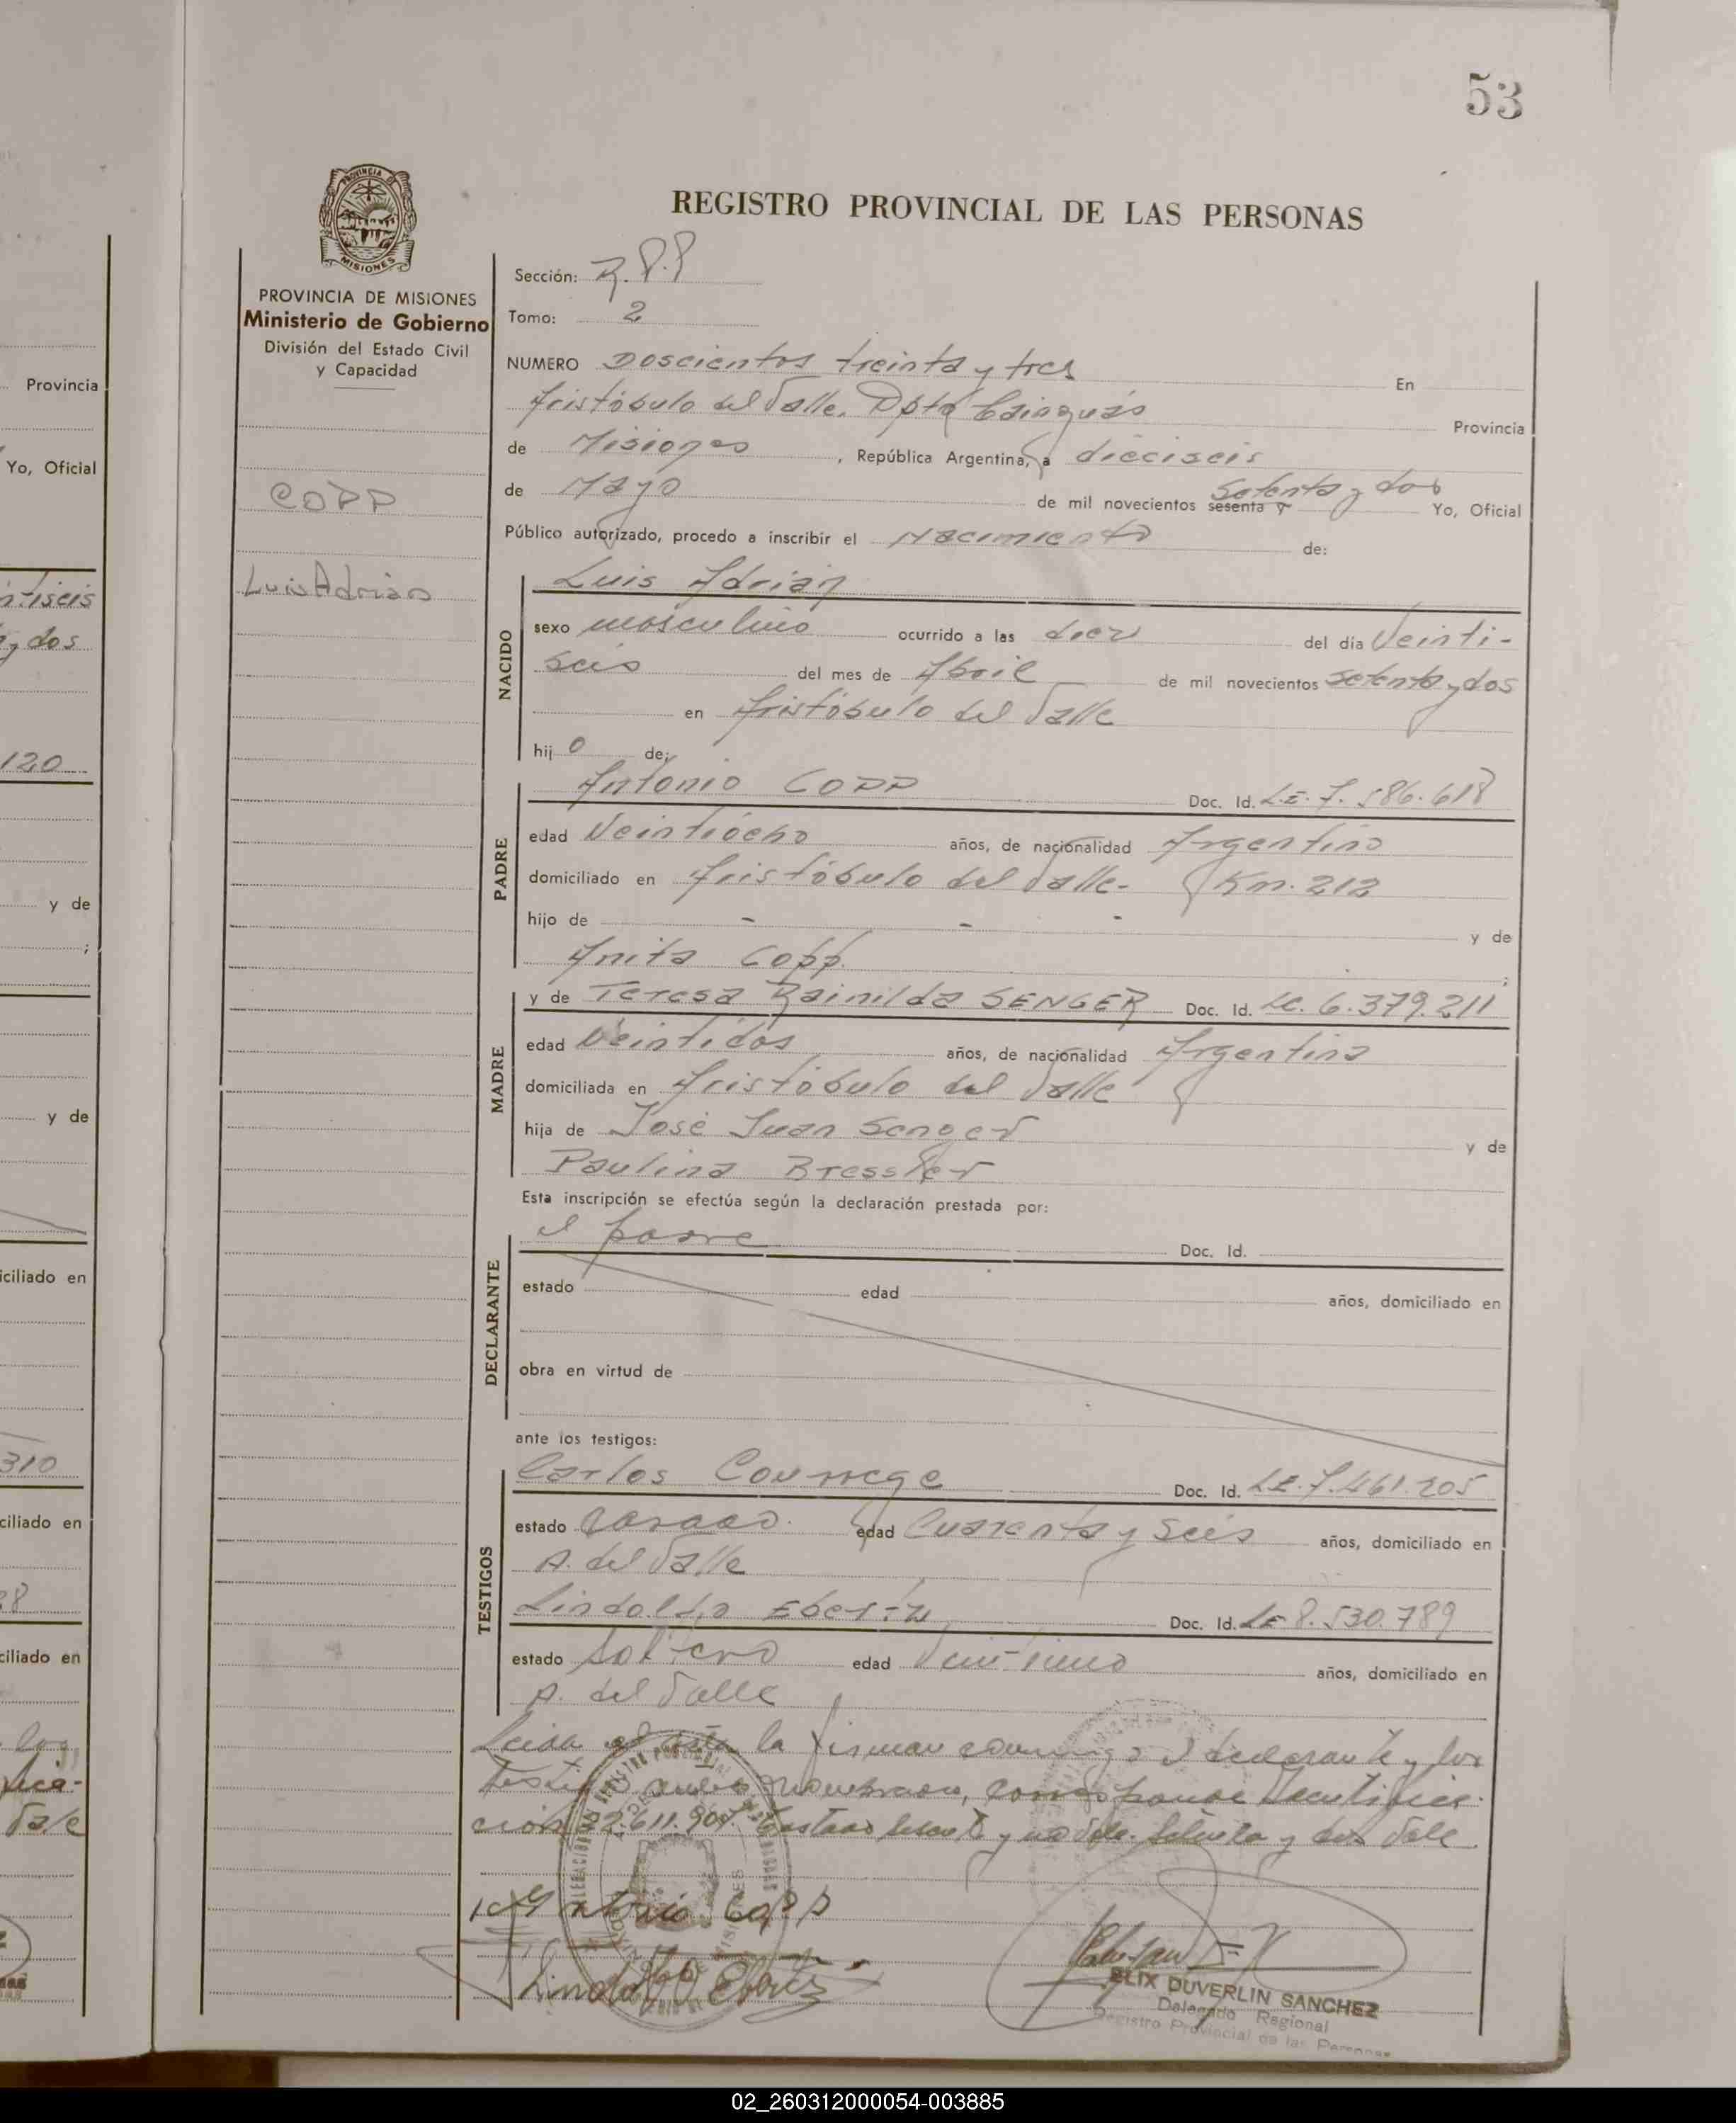 53
REGISTRO PROVINCIAL DE LAS PERSONAS
PROVINCIA DE MISIONES
Ministerio de Gobierno
División del Estado Civil
y Capacidad
COPP
Luis Adrian
Sección: R.P.P
Tomo: 2
NUMERO Doscientos treinta y tres En
Aristóbulo del Valle. Dpto Cainguás Provincia
de Misiones, República Argentina, a dieciseis
de Mayo de mil novecientos sesenta y setenta y dos Yo, Oficial
Público autorizado, procedo a inscribir el Nacimiento de:
NACIDO
Luis Adrian
sexo masculino ocurrido a las diez del día Veinti-
seis del mes de Abril de mil novecientos setenta y dos
en Aristóbulo del Valle
hij o de:
PADRE
Antonio COPP Doc. Id. L.E. 7.586.618
edad Veintiocho años, de nacionalidad Argentino
domiciliado en Aristóbulo del Valle- Km. 212
hijo de - - - y de
Anita Copp. ;
MADRE
y de Teresa Rainilda SENGER Doc. Id. LC. 6.379.211
edad Veintidos años, de nacionalidad Argentina
domiciliada en Aristóbulo del Valle
hija de José Juan Senger y de
Paulina Bressler
Esta inscripción se efectúa según la declaración prestada por:
DECLARANTE
el padre Doc. Id.
estado edad años, domiciliado en
obra en virtud de
ante los testigos:
TESTIGOS
Carlos Doc. Id. LE.7.461.205
estado casado. edad Cuarenta y Seis años, domiciliado en
A. del Valle
Lindolfo Ebertz Doc. Id. LE 8.530.789
estado soltero edad Veintiuno años, domiciliado en
A. del Valle
Leida el acta la firman conmigo el declarante y los
testigos
ción 22.611.907. setenta y dos Vale
Antonio Copp
Lindolfo Ebertz
ELIX DUVERLIN SANCHEZ
Delegado Regional
Registro Provincial de las Personas
Provincia
Yo, Oficial
y dos
120
y de
;
y de
iciliado en
310
ciliado en
28
ciliado en
Vale
02_260312000054-003885